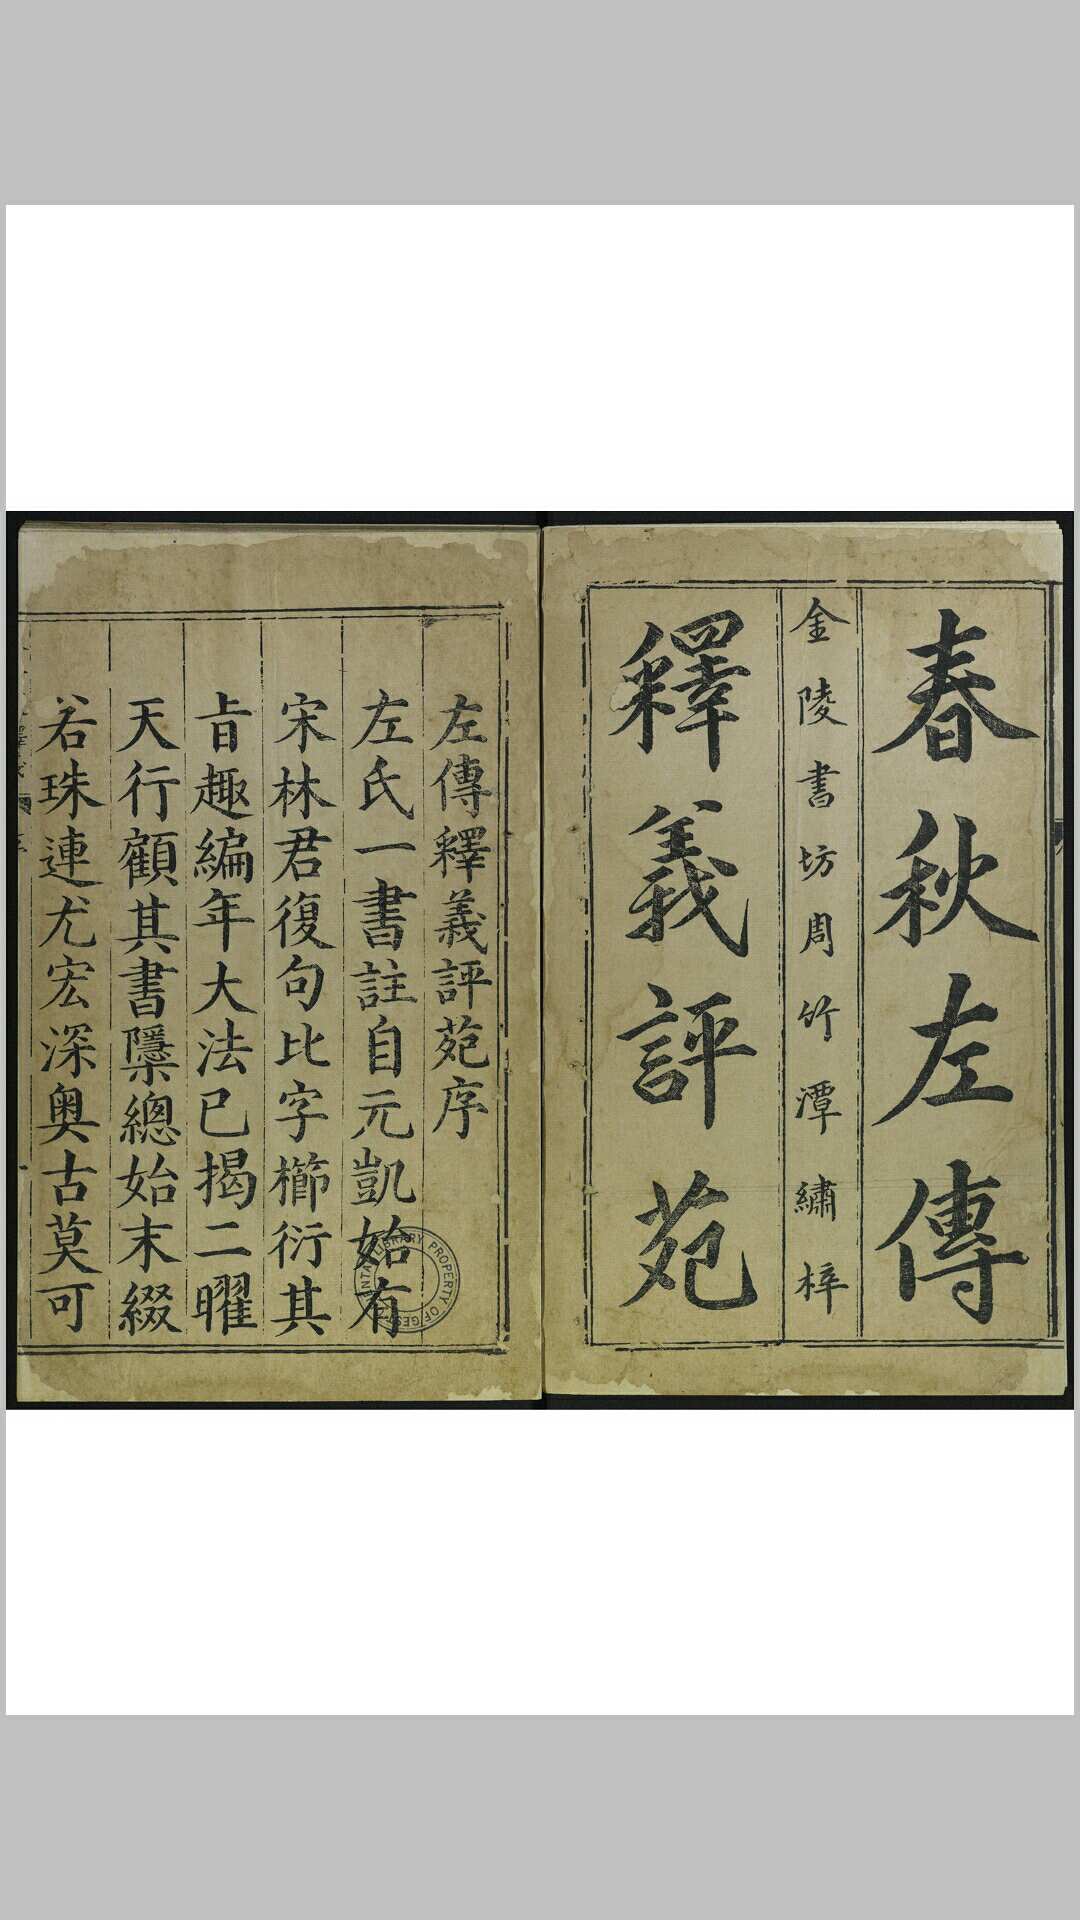 春秋左傳
金陵書坊周竹潭繡梓
釋義評苑
左傳釋義評苑序
左氏一書註自元凱始有
宋林君復句比字櫛衍其
旨趣編年大法已揭二曜
天行顧其書隱櫽總始末綴
若珠連尤宏深奥古莫可
LIBRARY PROPERTY OF GEST